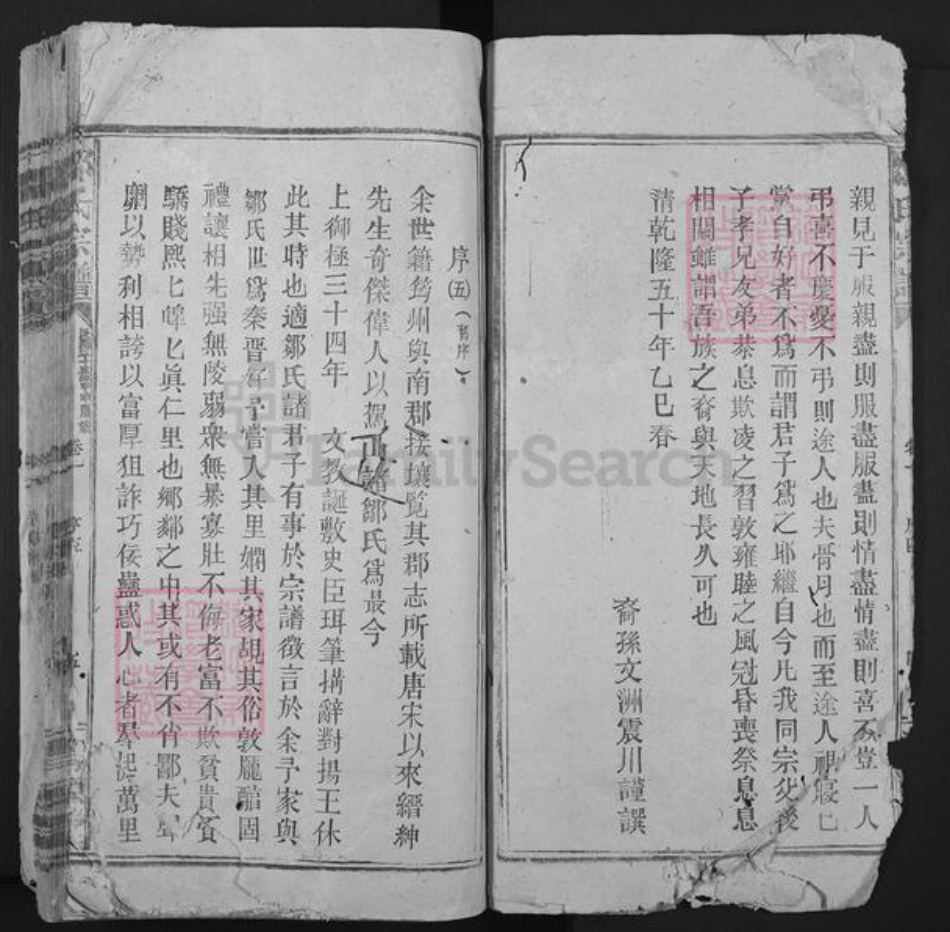 親見于服親盡則服盡服盡則情盡情盡則喜不登一人
弔喜不慶憂不弔則途人也夫骨月也而至途人視寖
黨自好者不為而謂君子爲之耶繼自今凡我同宗父後
子孝兄友弟恭息欺凌之習敦雍睦之風冠昏喪祭息息
相關雖謂吾族之裔與天地長久可也
清乾隆五十年乙巳春
裔孫文洲震川謹譔
序(五)(舊序)
余世籍筠州與南郡接壤覽其郡志所載唐宋以來縉紳
先生奇傑偉人以駕 鄒氏爲最今
上御極三十四年 文教誕敷史臣珥筆搆辭對揚王休
此其時也適鄒氏諸君子有事於宗譜徵言於余予家與
鄒氏世爲秦晉好予嘗人其里嫻其家覘其俗敦龐醕固
禮讓相先强無陵弱衆無暴寡壯不侮老富不欺貧貴不
驕賤熙匕皡匕眞仁里也鄉鄰之中其或有不肖鄙夫
劘以勢利相誇以富厚狙詐巧佞蠱惑人心者羣起萬里
鄒氏宗譜
卷一
五
FamilySearch